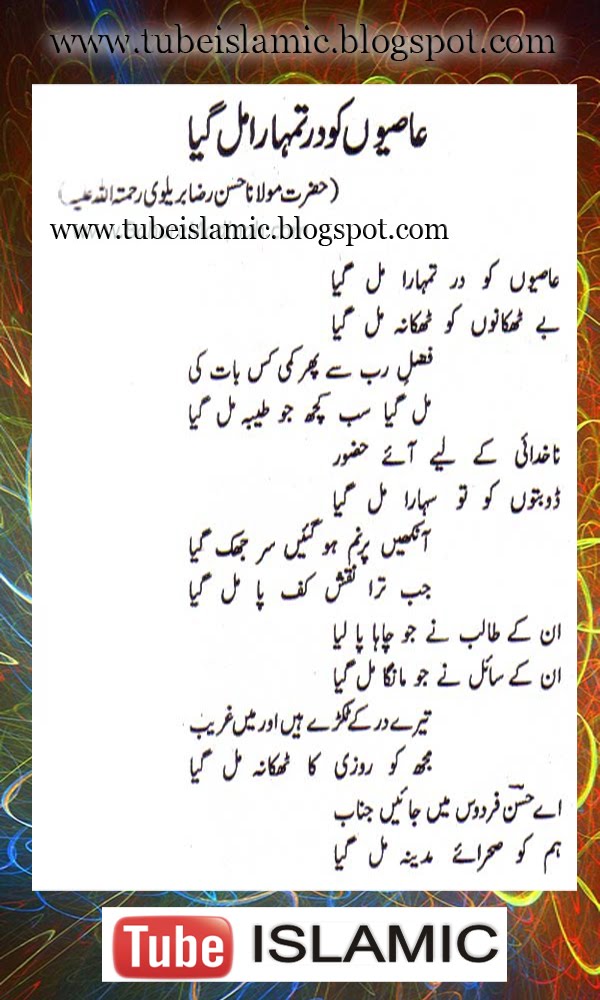 www.tubeislamic.blogspot.com
عاصیوں کو در تمہارا مل گیا
(حضرت مولانا حسن رضا بریلوی رحمتہ اللہ علیہ)
www.tubeislamic.blogspot.com
عاصیوں کو در تمہارا مل گیا
بے ٹھکانوں کو ٹھکانہ مل گیا
فضلِ رب سے پھر کمی کس بات کی
مل گیا سب کچھ جو طیبہ مل گیا
ناخدائی کے لیے آئے حضور
ڈوبتوں کو تو سہارا مل گیا
آنکھیں پرنم ہو گئیں سر جھک گیا
جب ترا نقش کف پا مل گیا
ان کے طالب نے جو چاہا پا لیا
ان کے سائل نے جو مانگا مل گیا
تیرے در کے ٹکڑے ہیں اور میں غریب
مجھ کو روزی کا ٹھکانہ مل گیا
اے حسنؔ فردوس میں جائیں جناب
ہم کو صحرائے مدینہ مل گیا
Tube ISLAMIC